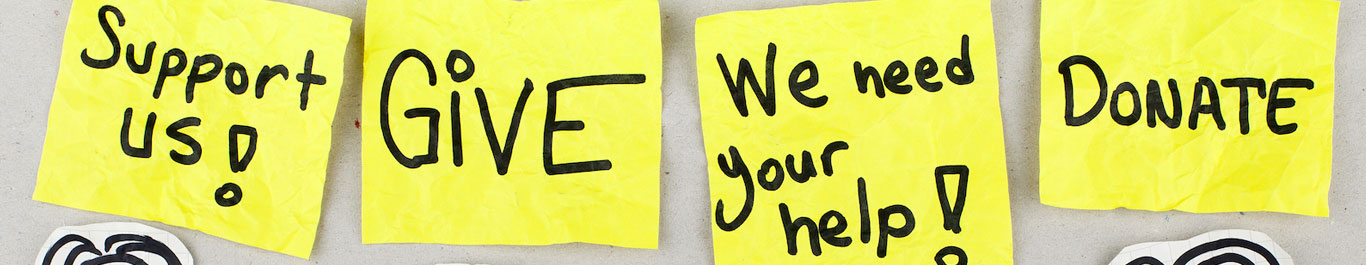 Support
us!
GiVE
We need
your
help!
DONATE